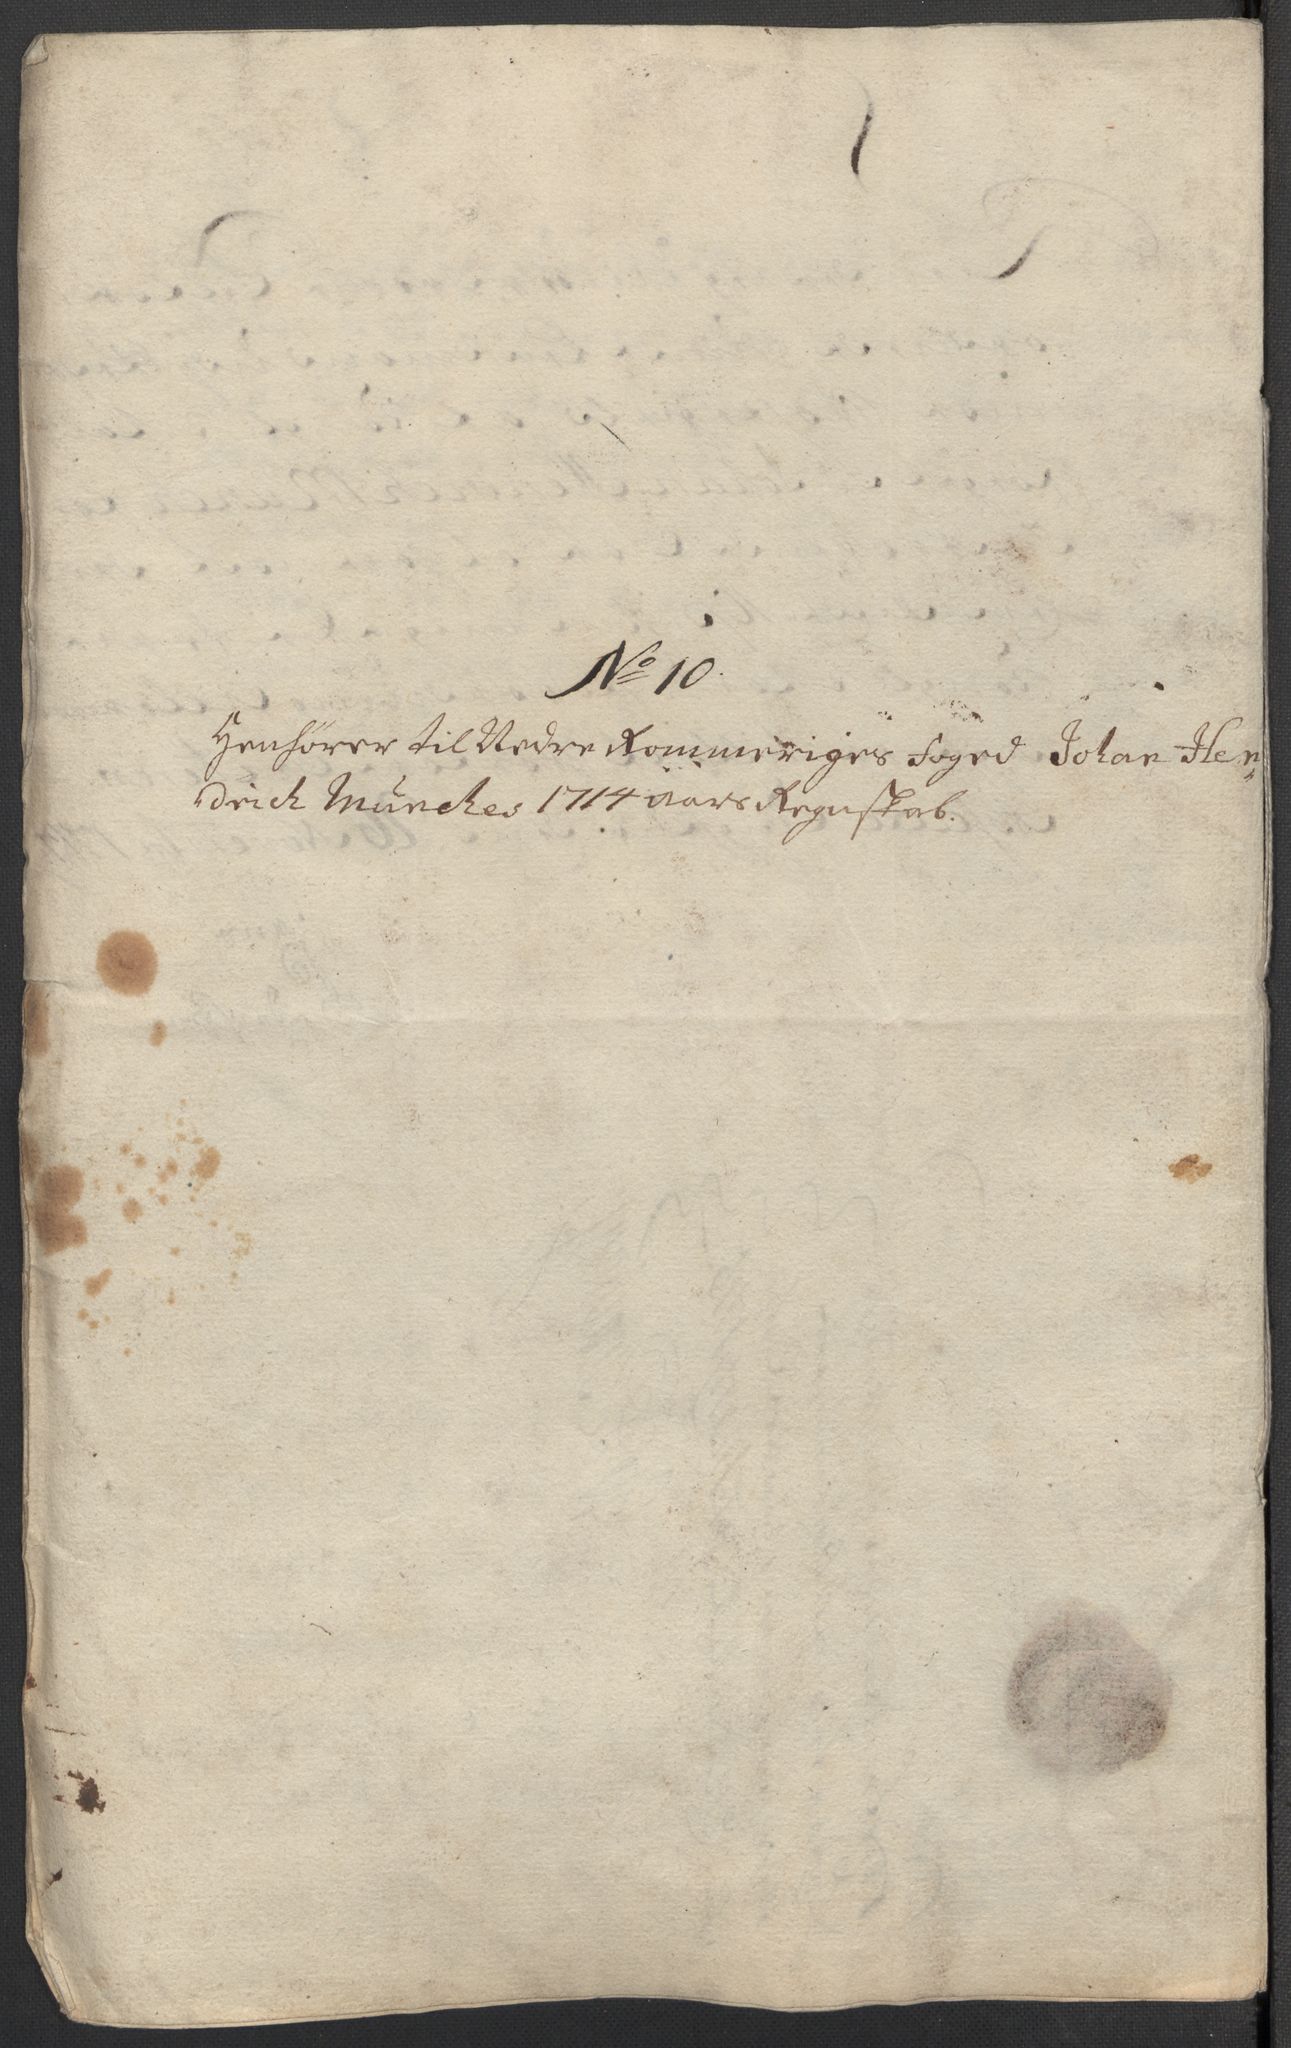 No 10.
Henhører til Nedre Rommeriges Foged Johan Hen„
drich Munches 1714 aars Regnskab.